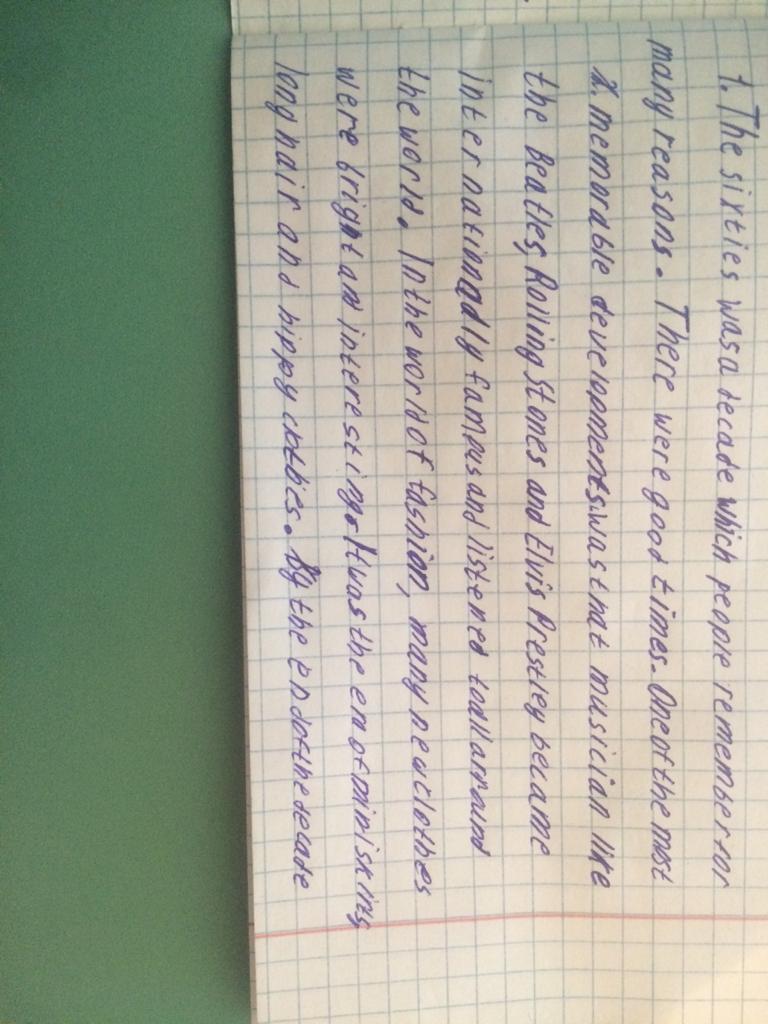 1. The sixties was a decade which people remember for
many reasons. There were good times. One of the most
2. memorable developments was that musician like
the Beatles, Rolling Stones and Elvis Prestley became
internationadly famous and listened to all arround
the world. In the world of fashion, many new clothes
were bright and interesting. It was the era of miniskirts,
long hair and hippy clothies. By the end of the decade